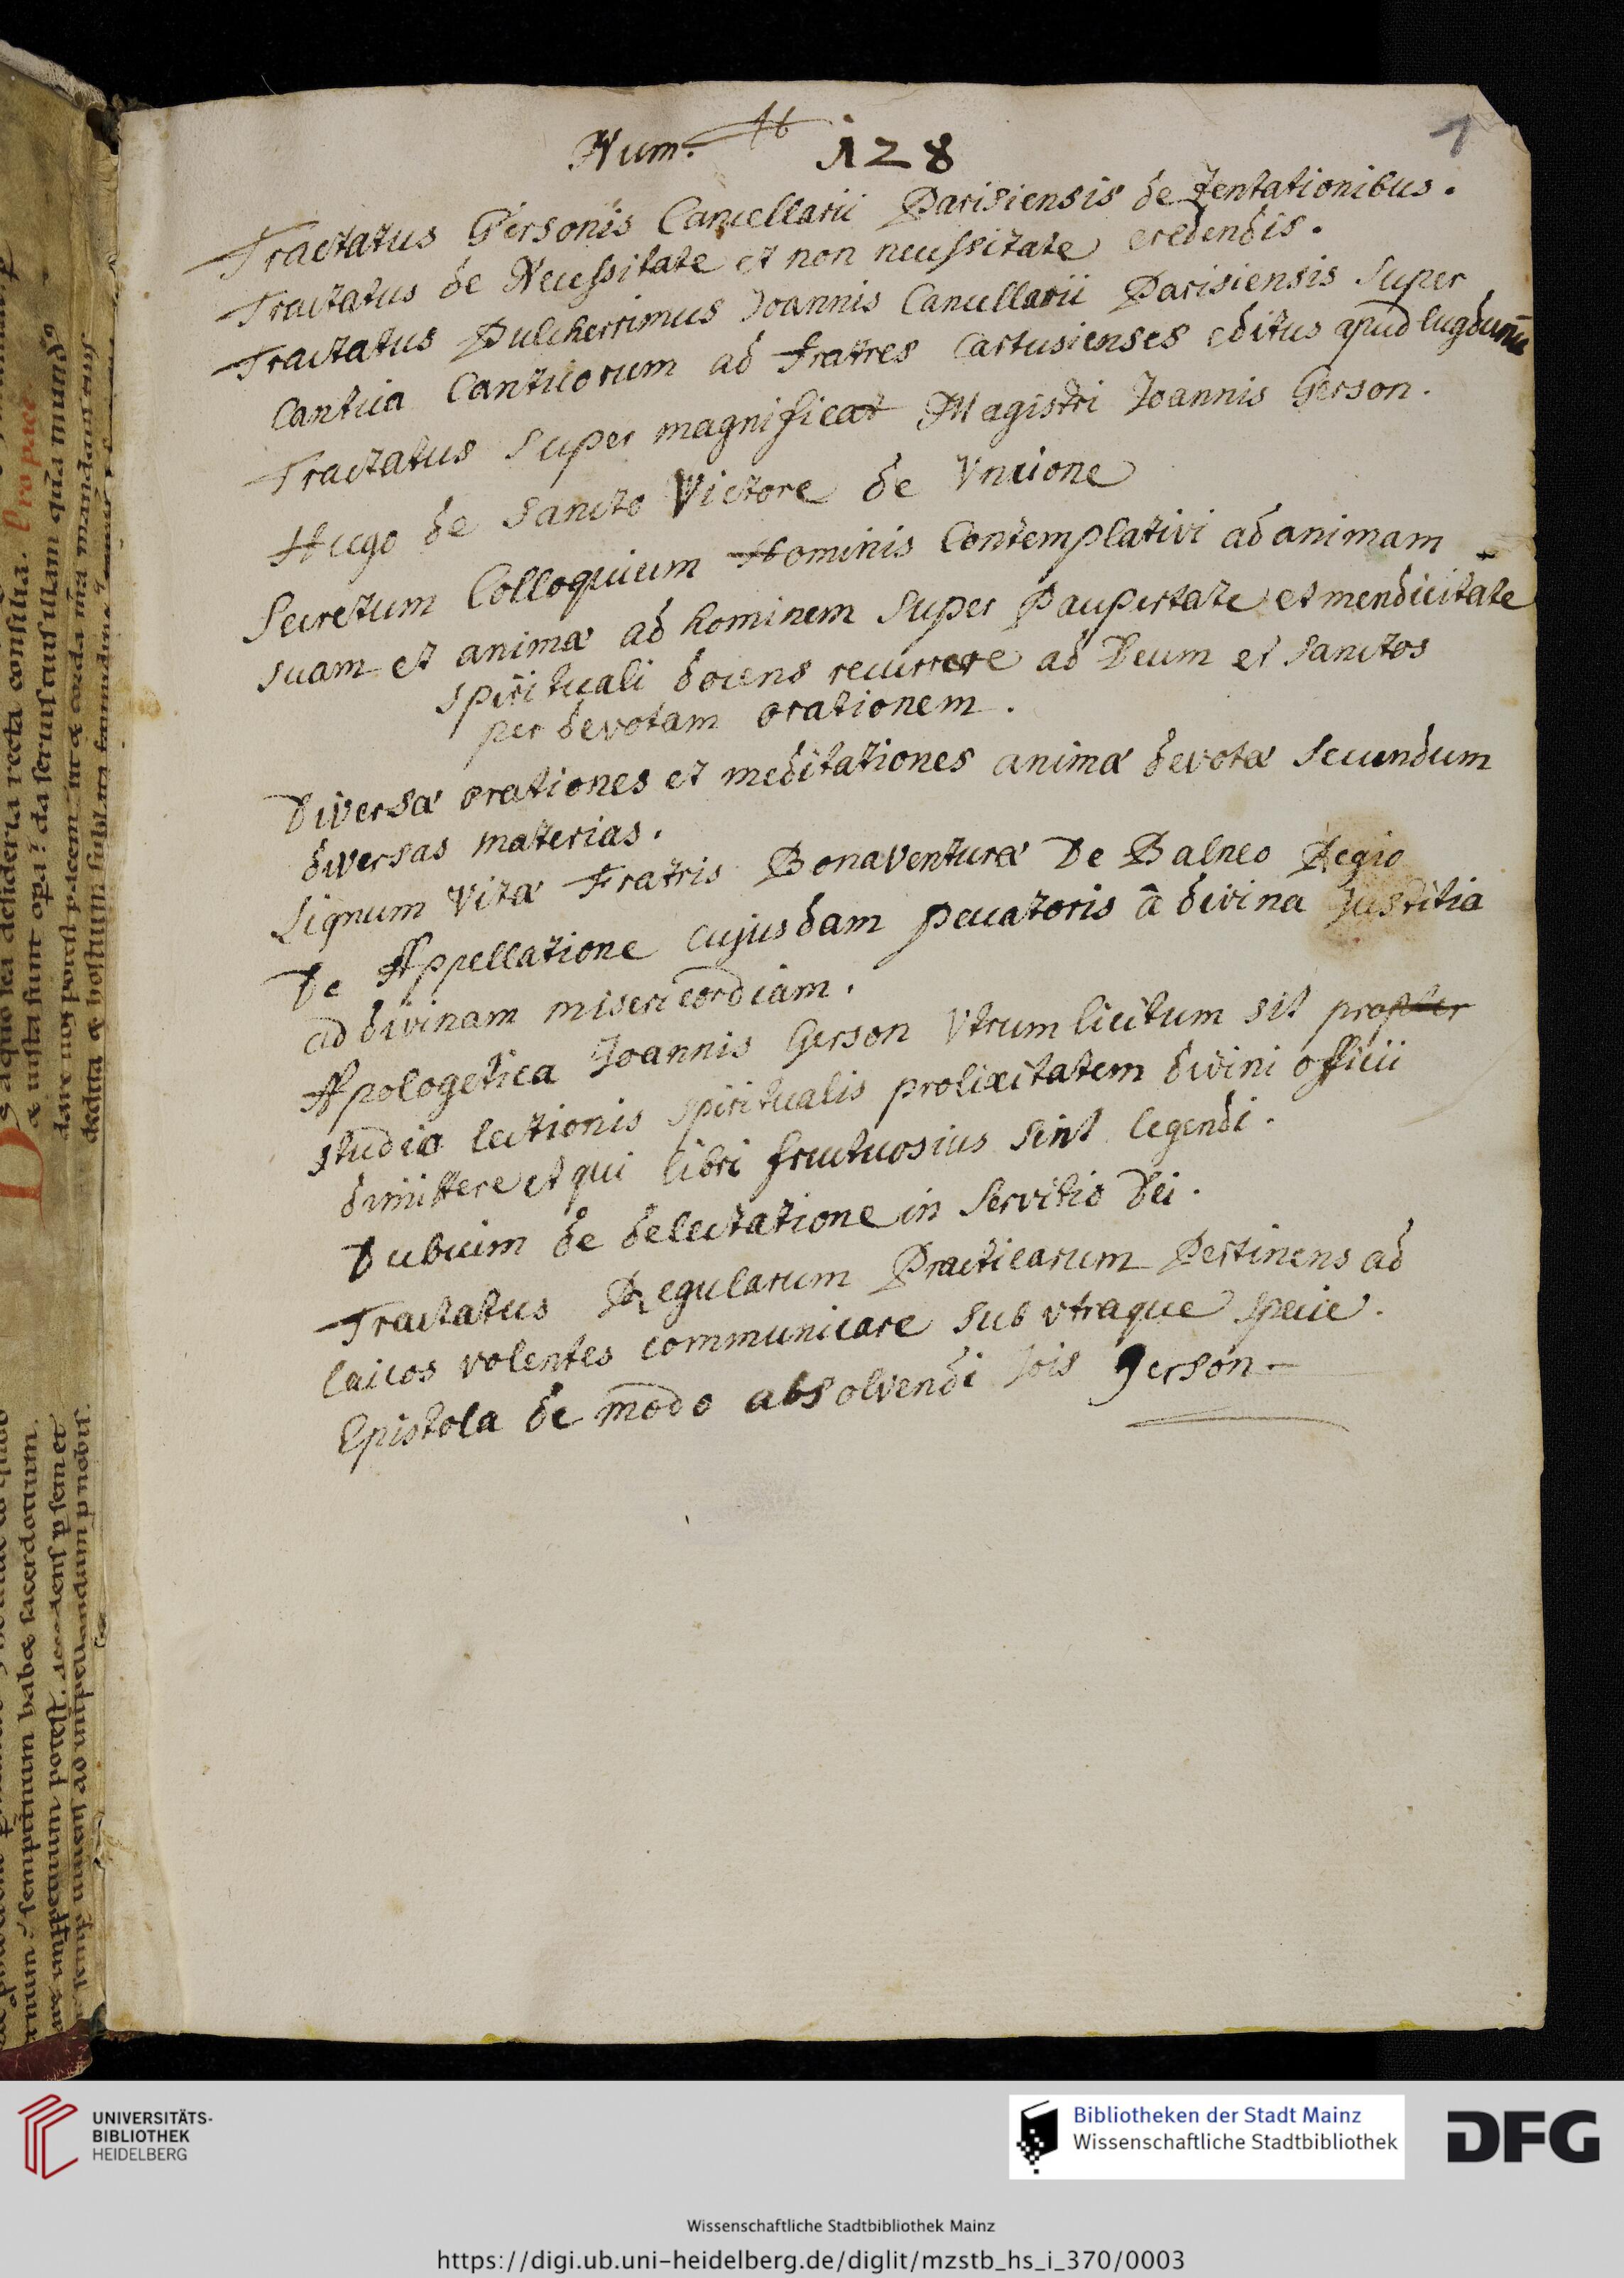 Num. 46 128
1
Tractatus Gersonis Cancellarii Parisiensis de Tentationibus.
Tractatus de Necessitate et non necessitate credendis.
Tractatus Pulcherrimus Joannis Cancellarii Parisiensis super
Cantica Canticorum ad fratres Cartusienses editus apud lugdunū
Tractatus super magnificat Magistri Joannis Gerson.
Hugo de Sancto Victore de Vnctione
Secretum Colloquium Hominis Contemplativi ad animam
suam et animæ ad hominem super Paupertate et mendicitate
spirituali docens recurrere ad Deum et sanctos
per devotam orationem.
Diversæ orationes et meditationes animæ devotæ secundum
diversas materias.
Lignum Vitæ Fratris Bonaventuræ De Balneo Regio
De Appellatione cujusdam peccatoris â divina justitia
ad divinam misericordiam.
Apologetica Joannis Gerson Vtrum licitum sit propter
studia lectionis spiritualis prolixitatem divini officii
dimittere et qui libri fructuosius sint legendi.
Dubium de delectatione in servitio Dei.
Tractatus Regularum Practicarum Pertinens ad
laicos volentes communicare sub vtraque specie.
Epistola de modo absolvendi Jois Gerson
UNIVERSITÄTS-
BIBLIOTHEK
HEIDELBERG
Bibliotheken der Stadt Mainz
Wissenschaftliche Stadtbibliothek
DFG
Wissenschaftliche Stadtbibliothek Mainz
https://digi.ub.uni-heidelberg.de/diglit/mzstb_hs_i_370/0003